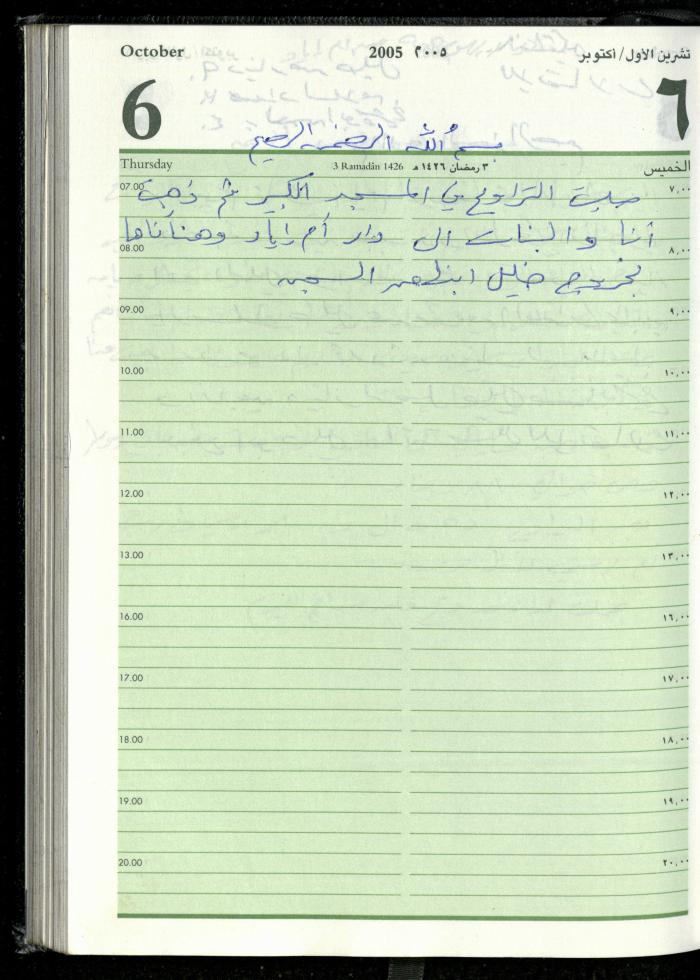 October 2005 ٢٠٠٥ تشرين الاول/اكتوبر
6 ٦
بسم الله الرحمن الرحيم
Thursday 3 Ramadân 1426 ٣ رمضان ١٤٢٦ هـ الخميس
07.00 ٧,٠٠
صليت التراويح في المسجد الكبير ثم ذهبت
أنا والبنات الى دار أم إياد وهنأناها
08.00 ٨,٠٠
بخروج خليل ابنها من السجن
09.00 ٩,٠٠
10.00 ١٠,٠٠
11.00 ١١,٠٠
12.00 ١٢,٠٠
13.00 ١٣,٠٠
16.00 ١٦,٠٠
17.00 ١٧,٠٠
18.00 ١٨,٠٠
19.00 ١٩,٠٠
20.00 ٢٠,٠٠